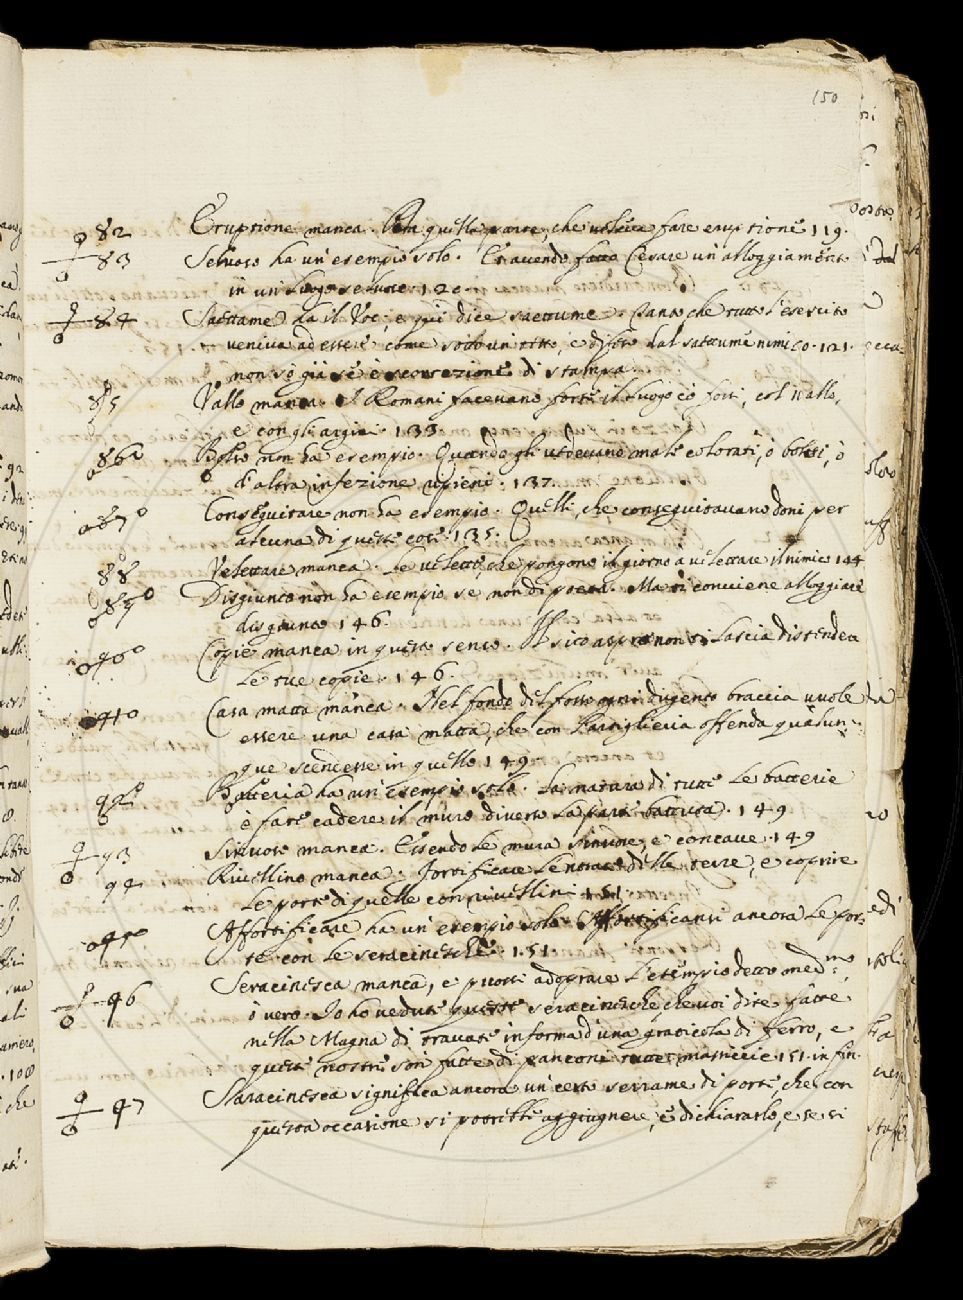 150
82 Eruptione manca. Da quella parte, che volesse fare eruptione 119.
83 Selvoso ha un'esempio solo. Et avendo fatto Cesare un'alloggiamento
in un luogo selvoso. 120.
84 Saettame ha il Voc: e qui dice saettume. Tanto che tutto l'esercito
veniva ad essere come sotto un tetto, e difeso dal saettume nimico. 121.
non so già se è scorrezione di stampa.
85 Vallo manca. I Romani facevano forte il luogo cò fossi, col Vallo,
e con gli argini. 133.
86 Bolso non ha esempio. Quando gli vedevano male colorati, ò bolsi, ò
d'altra infezione ripieni. 137.
87 Conseguitare non ha esempio. Quelli, che conseguitavano doni per
alcuna di queste cose. 135.
88 Velettare manca. Le velette, che pongono il giorno a velettare il nimico 144
89 Disgiunto non ha esempio se non di poeta. Ma ti conviene alloggiare
disgiunto 146.
90 Copie manca in questo senso. Il sito aspro non ti lascia distendere
le tue copie. 146.
91 Casa matta manca. Nel fondo del fosso ogni dugento braccia vuole
essere una casa matta, che con l'artiglieria offenda qualun-
que scendesse in quello 149.
92 Batteria ha un'esempio solo. La natura di tutte le batterie
è fare cadere il muro diverso la parte battuta. 149.
93 Sinuoso manca. Essendo le mura sinuose, e concave. 149
94 Rivellino manca. Fortificare l'entrate delle terre, e coprire
le porte di quelle con rivellini. 151.
95 Affortificare ha un'esempio solo. Affortificansi ancora le por-
te con le seracinesche. 151.
96 Seracinesca manca, e puossi adoprare l'esempio detto med.mo,
ò vero. Io ho vedute queste seracinesche che voi dite fatte
nella Magna di travate in forma d'una graticola di ferro, e
queste nostre son fatte di panconi tutte massiccie 151. in fin.
97 Saracinesca significa ancora un certo serrame di porte, che con
questa occasione si potrebbe aggiugnere, e dichiararlo, e se si